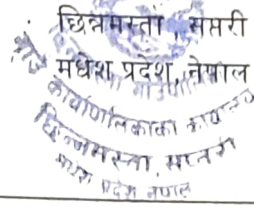 छिन्नमस्ता, सप्तरी
मधेश प्रदेश, नेपाल
कार्यपालिकाको कार्यालय
छिन्नमस्ता, सप्तरी
मधेश प्रदेश नेपाल